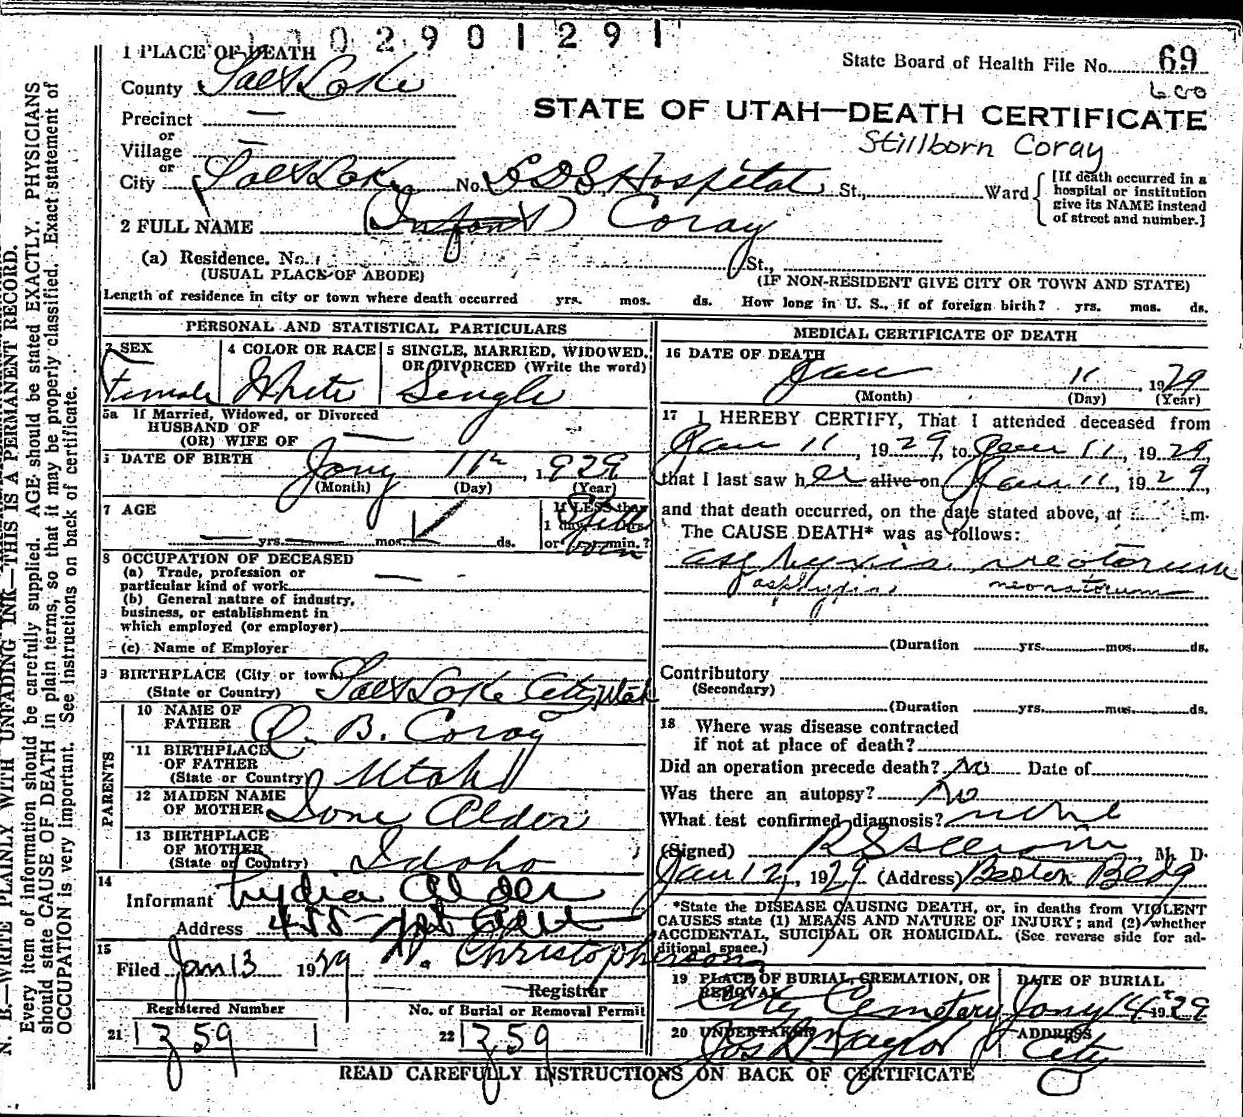 1 0 2 9 0 1 2 9 1
1 PLACE OF DEATH
State Board of Health File No. 69
County Salt Lake
600
STATE OF UTAH—DEATH CERTIFICATE
Precinct —
Stillborn Coray
or
Village —
or
City Salt Lake No. LDS Hospital St., Ward
[If death occurred in a hospital or institution give its NAME instead of street and number.]
2 FULL NAME (Infant) Coray
(a) Residence. No. St.,
(USUAL PLACE OF ABODE) (IF NON-RESIDENT GIVE CITY OR TOWN AND STATE)
Length of residence in city or town where death occurred yrs. mos. ds. How long in U. S., if of foreign birth? yrs. mos. ds.
PERSONAL AND STATISTICAL PARTICULARS
3 SEX
Female
4 COLOR OR RACE
White
5 SINGLE, MARRIED, WIDOWED,
OR DIVORCED (Write the word)
Single
5a If Married, Widowed, or Divorced
HUSBAND OF
(OR) WIFE OF —
6 DATE OF BIRTH Jany 11th, 1929
(Month) (Day) (Year)
7 AGE
If LESS than
1 day, hrs.
— yrs. mos. ds. or min.?
Still born
8 OCCUPATION OF DECEASED
(a) Trade, profession or
particular kind of work —
(b) General nature of industry,
business, or establishment in
which employed (or employer)
(c) Name of Employer
9 BIRTHPLACE (City or town)
(State or Country) Salt Lake City, Utah
PARENTS
10 NAME OF
FATHER B. Coray
11 BIRTHPLACE
OF FATHER
(State or Country) Utah
12 MAIDEN NAME
OF MOTHER Ione Alder
13 BIRTHPLACE
OF MOTHER
(State or Country) Idaho
14
Informant Lydia Alder
Address
15
Filed Jan 13 1929 Christopherson
Registrar
Registered Number No. of Burial or Removal Permit
21 359 22 359
MEDICAL CERTIFICATE OF DEATH
16 DATE OF DEATH
Jan 11, 1929
(Month) (Day) (Year)
17 I HEREBY CERTIFY, That I attended deceased from
Jan 11, 1929, to Jan 11, 1929,
that I last saw her alive on Jan 11, 1929,
and that death occurred, on the date stated above, at m.
The CAUSE DEATH* was as follows:
asphyxia neotorum
asphyxia neonatorum
(Duration yrs. mos. ds.
Contributory
(Secondary)
(Duration yrs. mos. ds.
18 Where was disease contracted
if not at place of death?
Did an operation precede death? No Date of
Was there an autopsy? No
What test confirmed diagnosis? none
(Signed) M. D.
Jan 12, 1929 (Address) Boston Bldg
*State the DISEASE CAUSING DEATH, or, in deaths from VIOLENT
CAUSES state (1) MEANS AND NATURE OF INJURY; and (2) whether
ACCIDENTAL, SUICIDAL OR HOMICIDAL. (See reverse side for ad-
ditional space.)
19 PLACE OF BURIAL, CREMATION, OR
REMOVAL
City Cemetery
DATE OF BURIAL
Jany 14 1929
20 UNDERTAKER
Jos Taylor
ADDRESS
City
READ CAREFULLY INSTRUCTIONS ON BACK OF CERTIFICATE
N. B.—WRITE PLAINLY WITH UNFADING INK—THIS IS A PERMANENT RECORD.
Every item of information should be carefully supplied. AGE should be stated EXACTLY. PHYSICIANS
should state CAUSE OF DEATH in plain terms, so that it may be properly classified. Exact statement of
OCCUPATION is very important. See instructions on back of certificate.